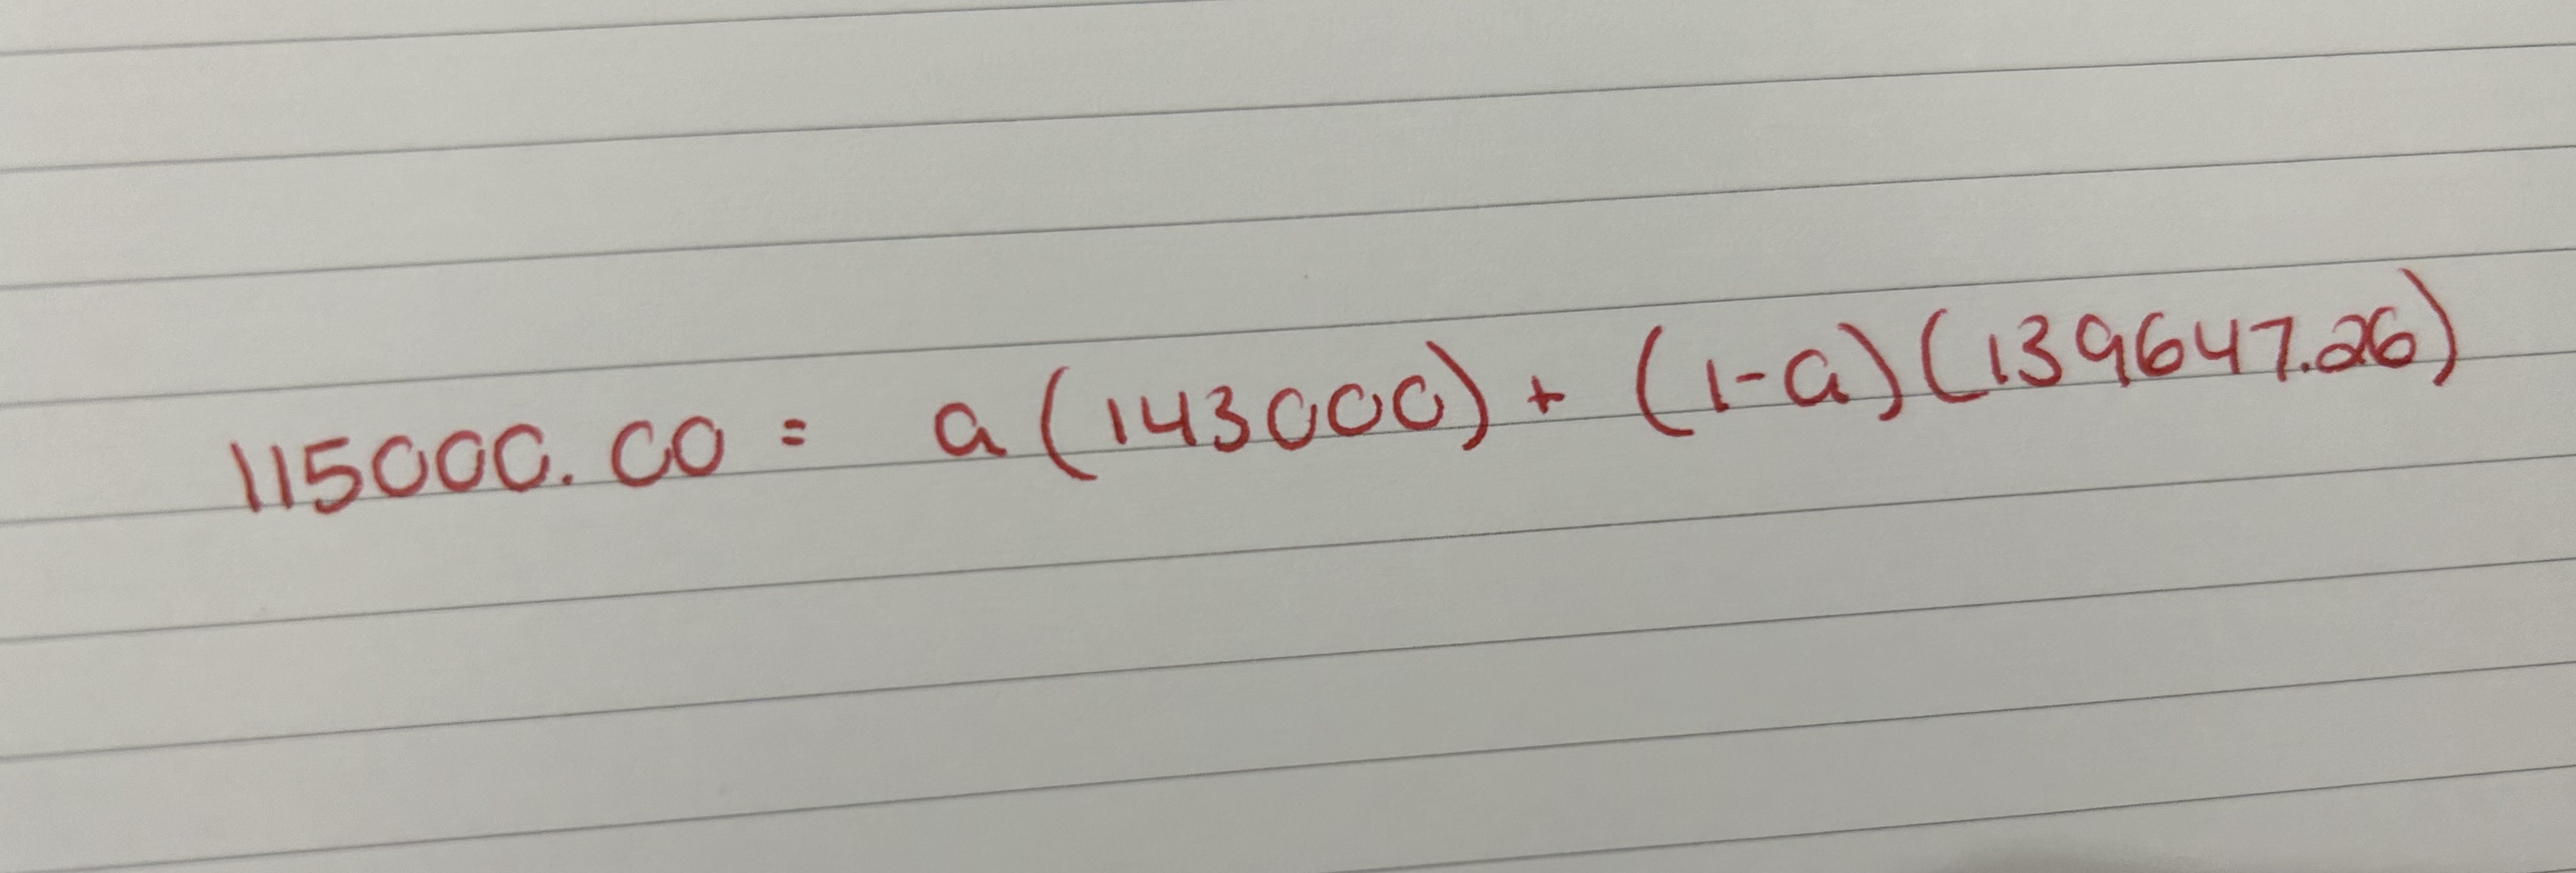 115000.00 = a(143000) + (1-a)(139647.26)